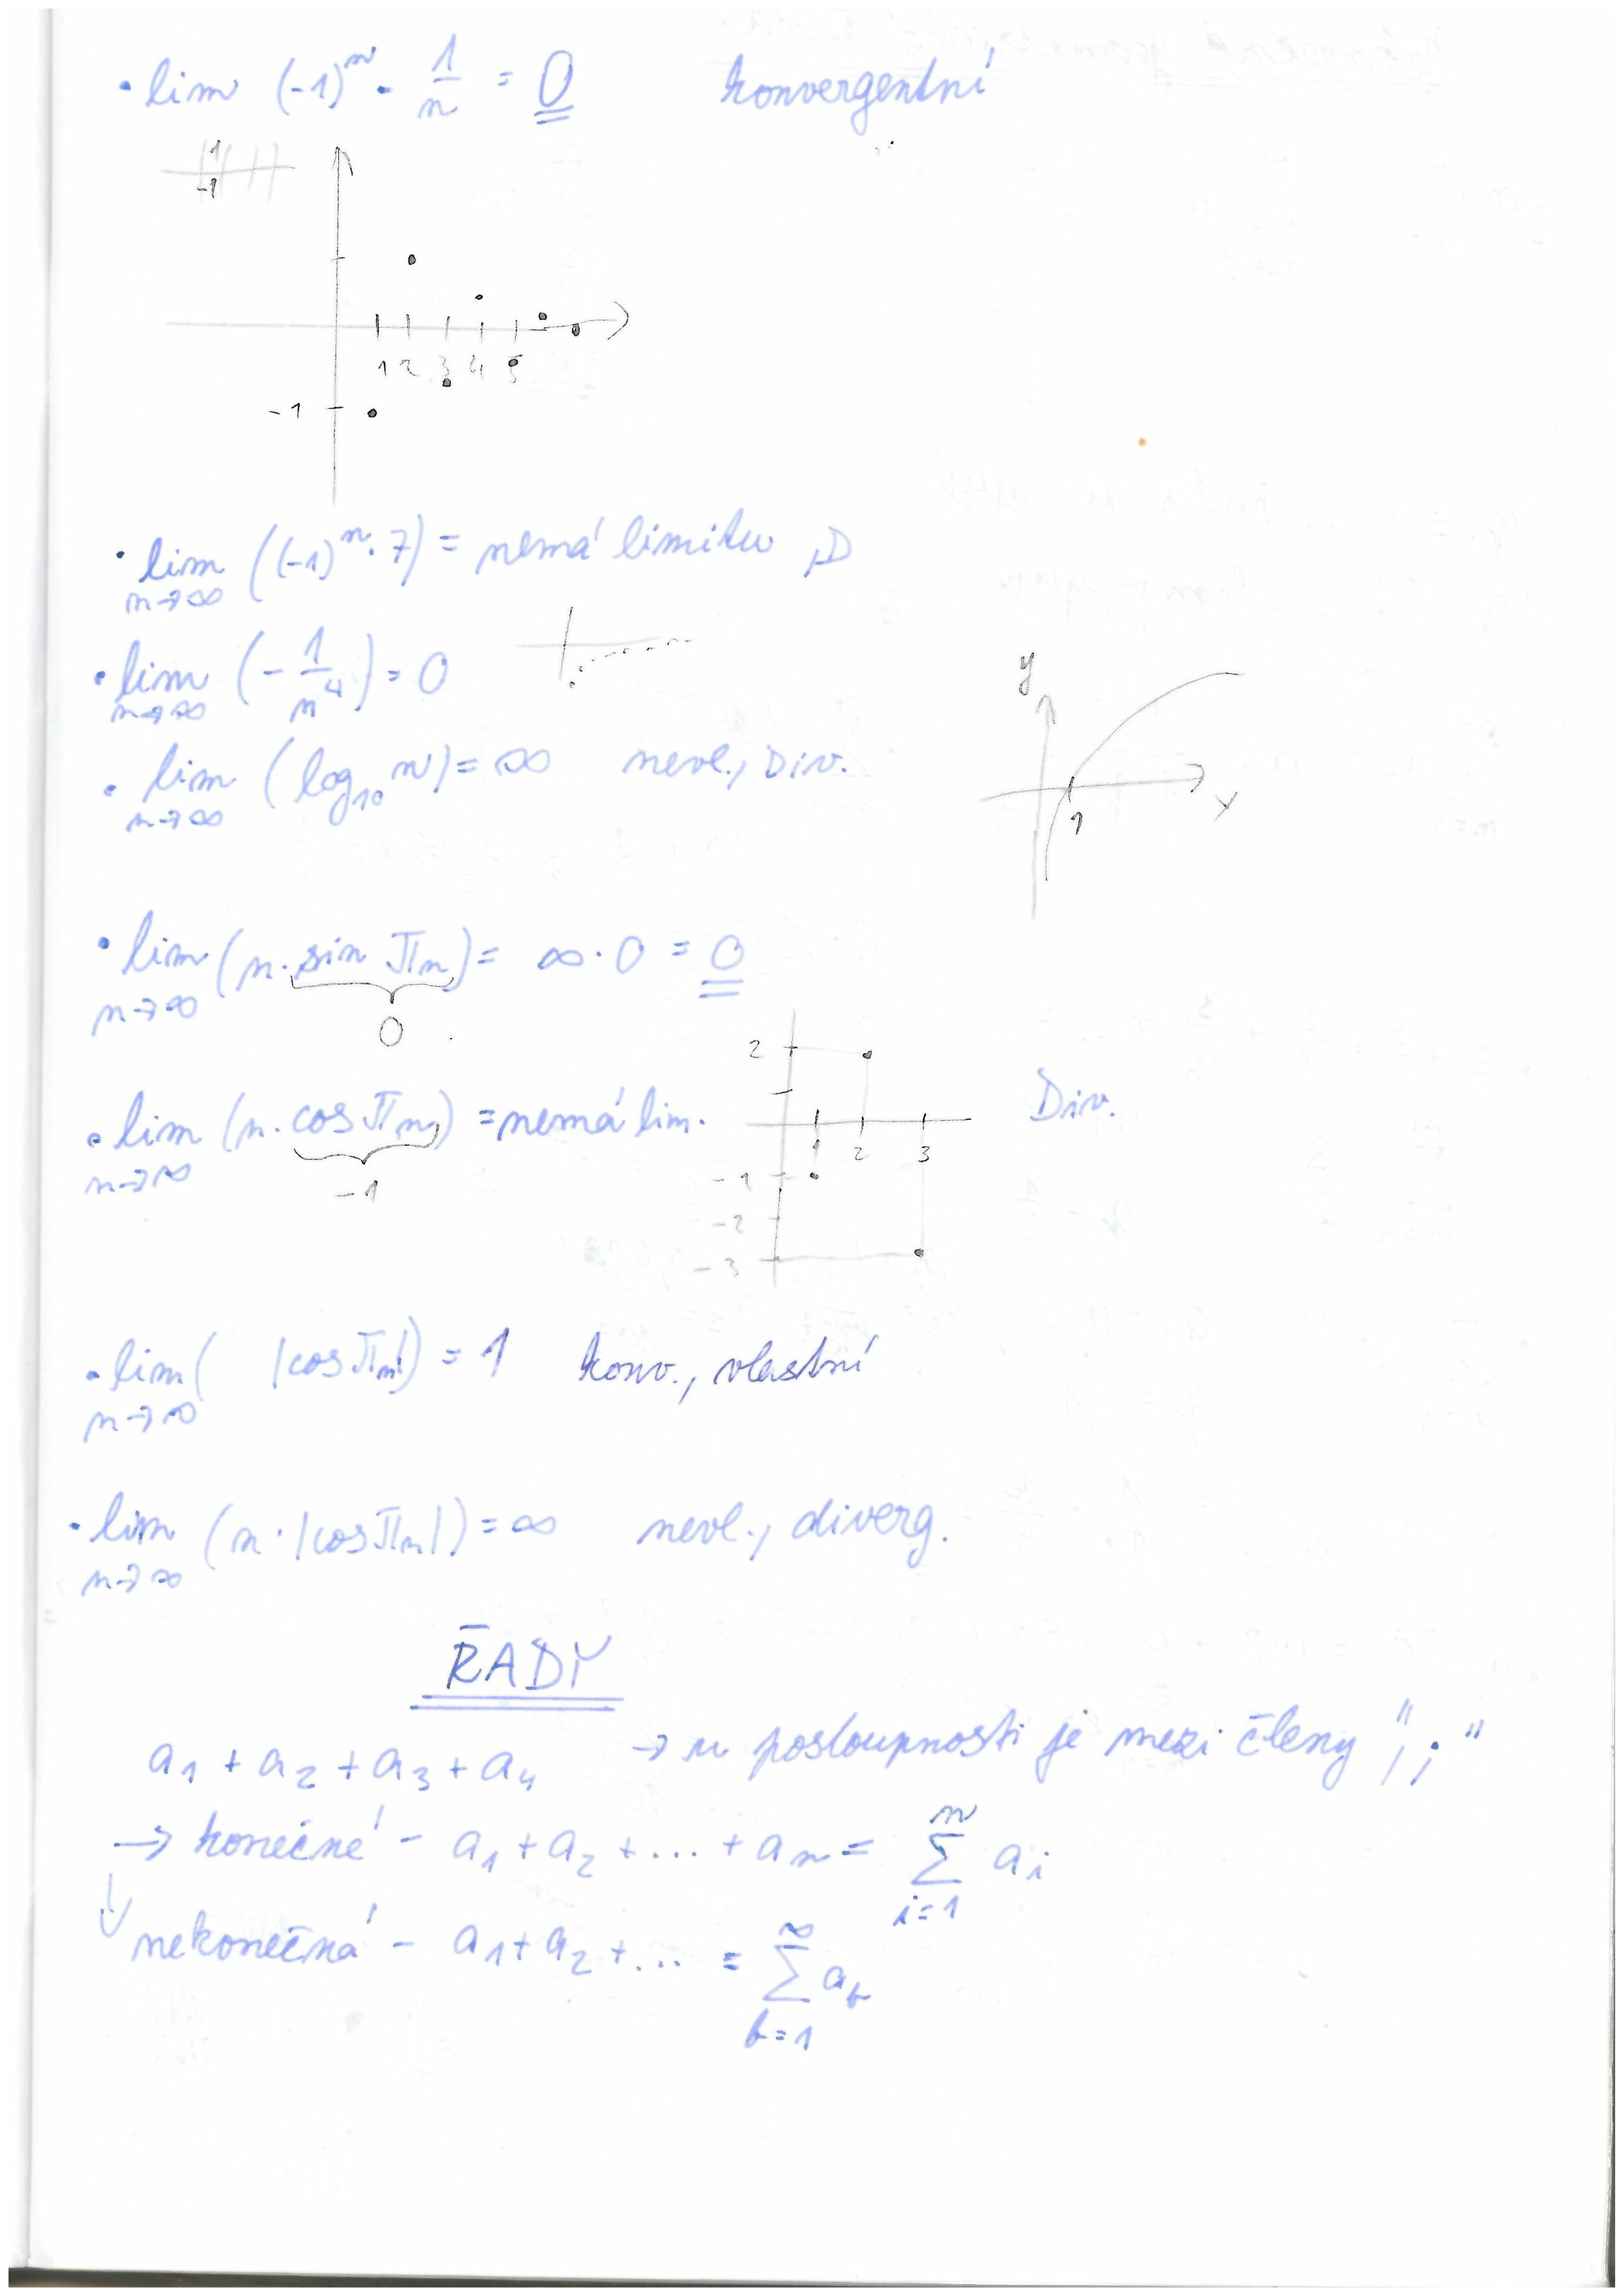 • lim (-1)ⁿ · 1/n = 0 konvergentní
1
-1
1 2 3 4 5
-1
• lim ((-1)ⁿ · 7) = nemá limitu, D
n→∞
• lim (- 1/n⁴) = 0
n→∞
y
• lim (log₁₀ n) = ∞ nevl., Div.
n→∞
x
1
• lim (n · sin πn) = ∞ · 0 = 0
n→∞
0
2
• lim (n · cos πn) = nemá lim. Div.
n→∞
-1
1 2 3
-1
-2
-3
• lim ( |cos πn|) = 1 konv., vlastní
n→∞
• lim (n · |cos πn|) = ∞ nevl., diverg.
n→∞
ŘADY
a₁ + a₂ + a₃ + a₄ → u posloupnosti je mezi členy ",;"
→ konečné - a₁ + a₂ + ... + aₙ = n ∑ i=1 aᵢ
↓ nekonečná - a₁ + a₂ + ... = ∞ ∑